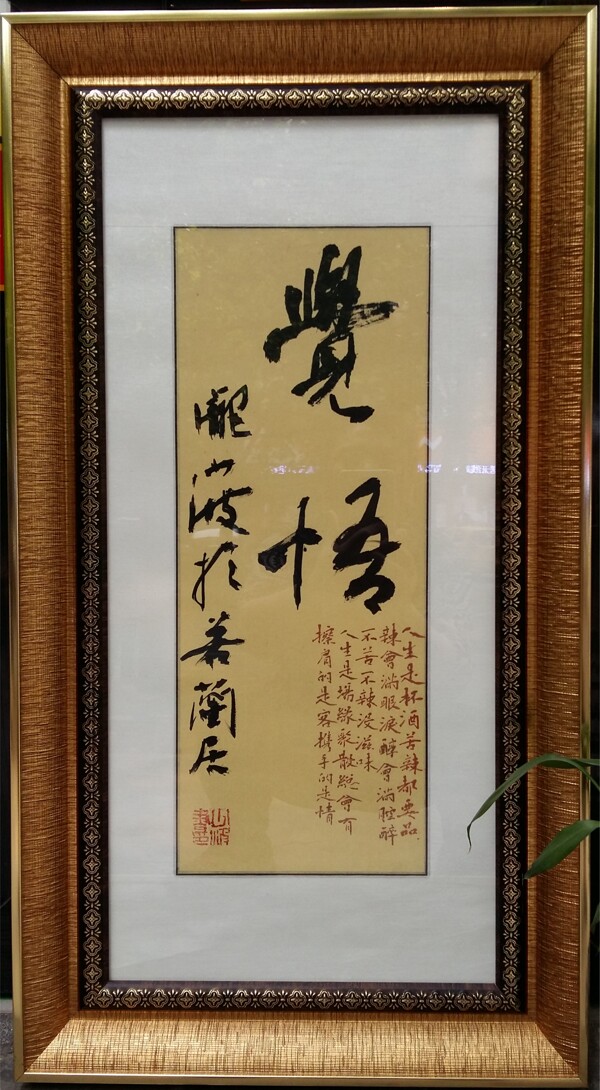 覺悟
人生是杯酒苦辣都要品
辣會淌眼淚醇會淌腔醉
不苦不辣没滋味
人生是場緣聚散總會有
擦肩的是客攜手的是情
龍山波於若蘭居